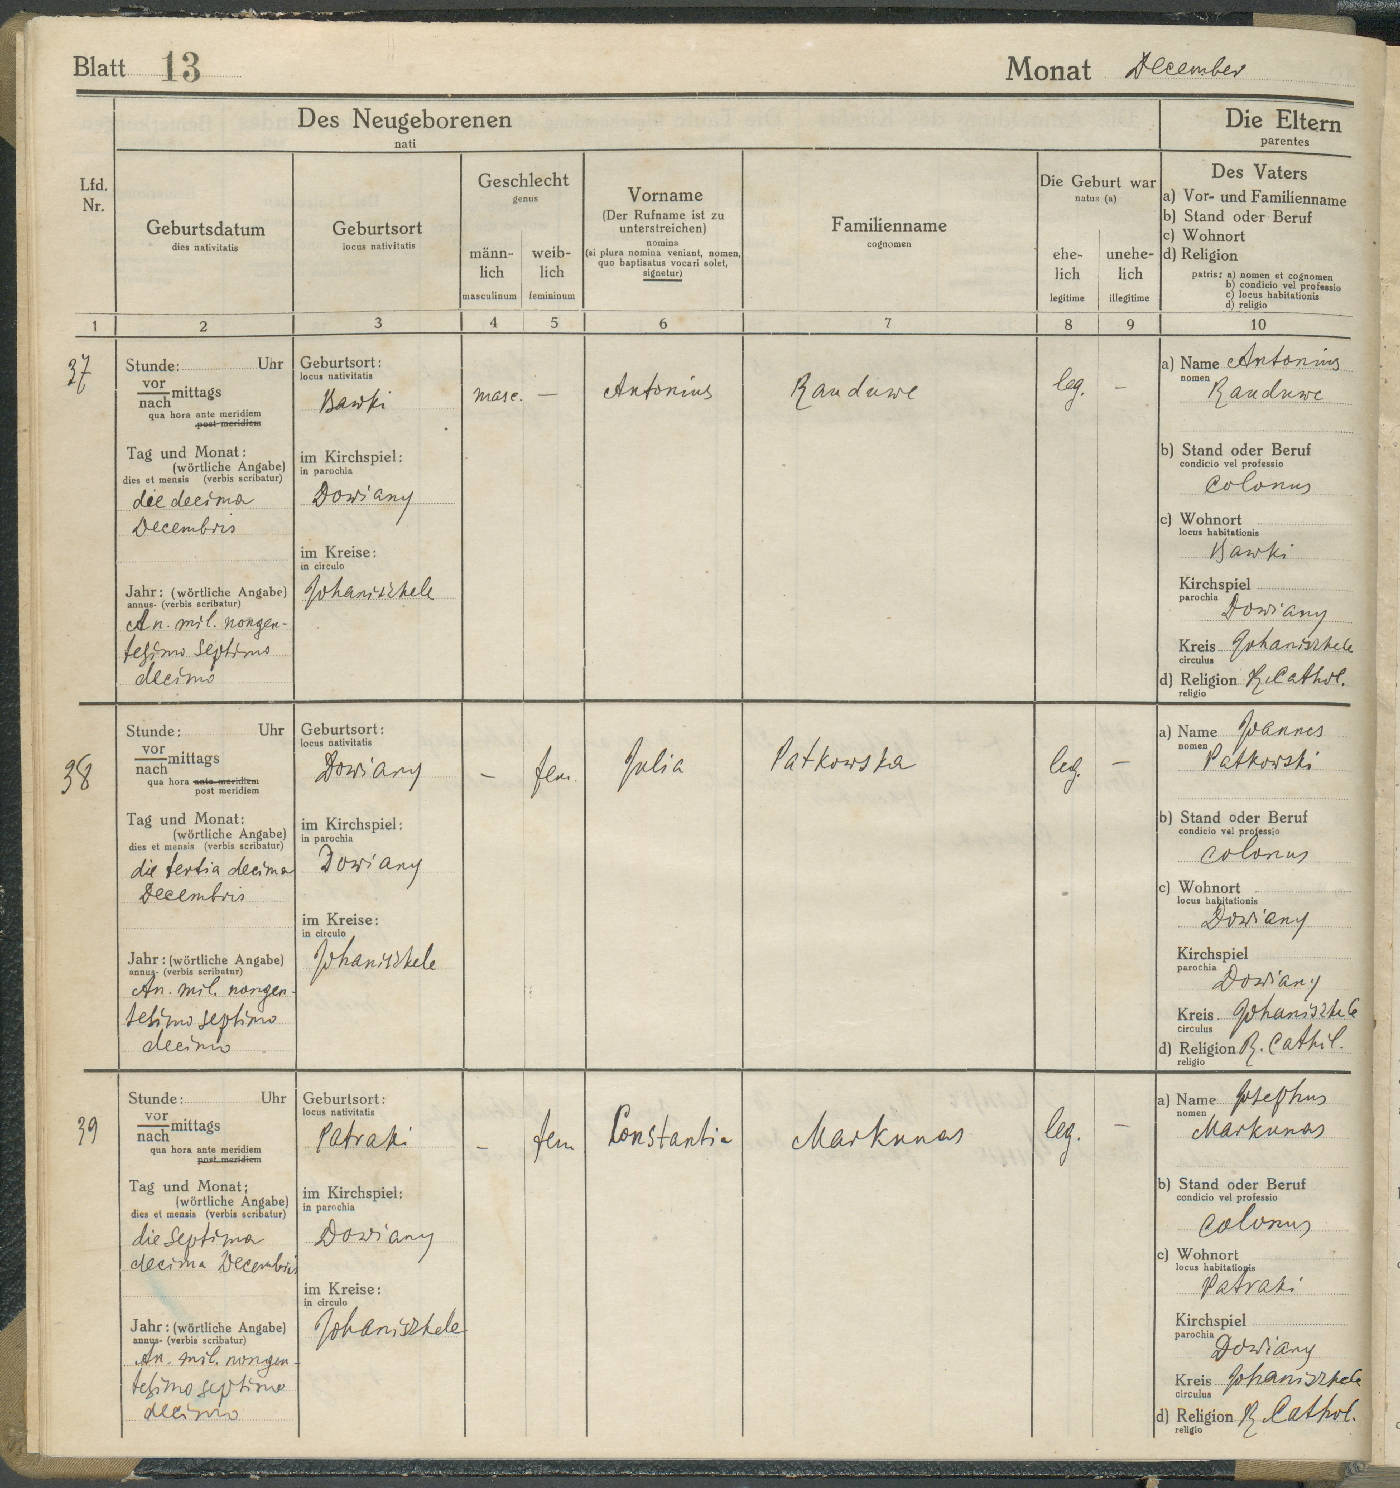 Blatt 13
Monat December
Des Neugeborenen
nati
Die Eltern
parentes
Lfd.
Nr.
Geburtsdatum
dies nativitatis
Geburtsort
locus nativitatis
Geschlecht
genus
männ-
lich
masculinum
weib-
lich
femininum
Vorname
(Der Rufname ist zu
unterstreichen)
nomina
(si plura nomina veniant, nomen,
quo baptisatus vocari solet,
signetur)
Familienname
cognomen
Die Geburt war
natus (a)
ehe-
lich
legitime
unehe-
lich
illegitime
Des Vaters
a) Vor- und Familienname
b) Stand oder Beruf
c) Wohnort
d) Religion
patris: a) nomen et cognomen
b) condicio vel professio
c) locus habitationis
d) religio
1 2 3 4 5 6 7 8 9 10
37
Stunde: Uhr
vor
nach mittags
qua hora ante meridiem
post meridiem
Tag und Monat:
(wörtliche Angabe)
dies et mensis (verbis scribatur)
die decima
Decembris
Jahr: (wörtliche Angabe)
annus- (verbis scribatur)
An. mil. nongen-
tesimo septimo
decimo
Geburtsort:
locus nativitatis
Bawki
im Kirchspiel:
in parochia
Dowiany
im Kreise:
in circulo
Johaniszkele
masc. —
Antonius
Randuwe
leg. –
a) Name Antonius
nomen
Randuwe
b) Stand oder Beruf
condicio vel professio
colonus
c) Wohnort
locus habitationis
Bawki
Kirchspiel
parochia
Dowiany
Kreis Johaniszkele
circulus
d) Religion R. Cathol.
religio
38
Stunde: Uhr
vor
nach mittags
qua hora ante meridiem
post meridiem
Tag und Monat:
(wörtliche Angabe)
dies et mensis (verbis scribatur)
die tertia decima
Decembris
Jahr: (wörtliche Angabe)
annus- (verbis scribatur)
An. mil. nongen-
tesimo septimo
decimo
Geburtsort:
locus nativitatis
Dowiany
im Kirchspiel:
in parochia
Dowiany
im Kreise:
in circulo
Johaniszkele
– fem.
Julia
Patkowska
leg. –
a) Name Joannes
nomen
Patkowski
b) Stand oder Beruf
condicio vel professio
colonus
c) Wohnort
locus habitationis
Dowiany
Kirchspiel
parochia
Dowiany
Kreis Johaniszkele
circulus
d) Religion R. Cathol.
religio
39
Stunde: Uhr
vor
nach mittags
qua hora ante meridiem
post meridiem
Tag und Monat:
(wörtliche Angabe)
dies et mensis (verbis scribatur)
die septima
decima Decembris
Jahr: (wörtliche Angabe)
annus- (verbis scribatur)
An. mil. nongen-
tesimo septimo
decimo
Geburtsort:
locus nativitatis
Patraki
im Kirchspiel:
in parochia
Dowiany
im Kreise:
in circulo
Johaniszkele
– fem
Constantia
Markunas
leg. –
a) Name Josephus
nomen
Markunas
b) Stand oder Beruf
condicio vel professio
colonus
c) Wohnort
locus habitationis
Patraki
Kirchspiel
parochia
Dowiany
Kreis Johaniszkele
circulus
d) Religion R. Cathol.
religio